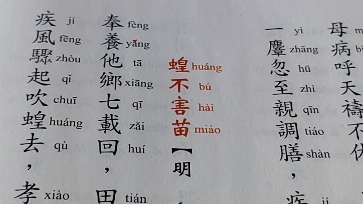 母病呼天禱不休
一麞忽至親調膳，疾
yì zhāng hū zhì qīn tiáo shàn
蝗不害苗【明
huáng bú hài miáo
奉養他鄉七載回，田
fèng yǎng tā xiāng qī zǎi huí tián
疾風驟起吹蝗去，孝
jí fēng zhòu qǐ chuī huáng qù xiào